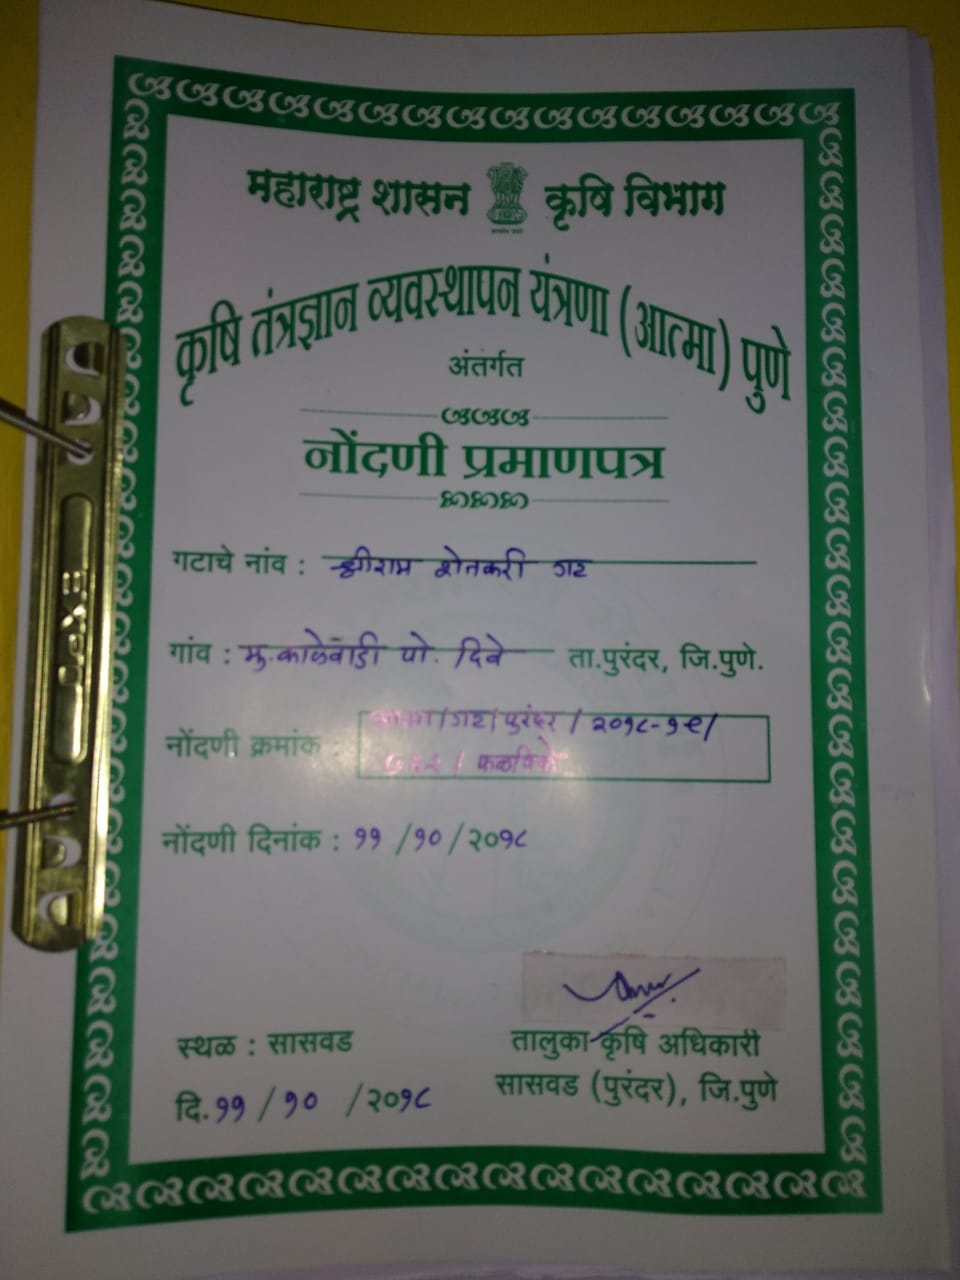 महाराष्ट्र शासन कृषि विभाग
कृषि तंत्रज्ञान व्यवस्थापन यंत्रणा (आत्मा) पुणे
अंतर्गत
नोंदणी प्रमाणपत्र
गटाचे नांव : श्रीराम शेतकरी गट
गांव : मु.काळेवाडी पो. दिवे ता.पुरंदर, जि.पुणे.
नोंदणी क्रमांक : /गट/पुरंदर/२०१८-१९/
/ फळपिके
नोंदणी दिनांक : ११/१०/२०१८
स्थळ : सासवड
दि.११/१०/२०१८
तालुका कृषि अधिकारी
सासवड (पुरंदर), जि.पुणे